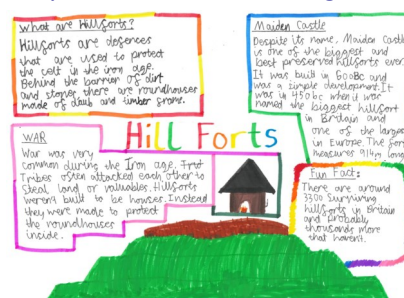 What are Hillsorts?
Hillsorts are desences
that are used to protect
the celt in the iron age.
Behind the barron of dirt
and stones there are roundhouses
made of daub and timber srams.
Maiden Castle
Despite its name, Maiden Castle
is one of the biggest and
best preserved hillsorts ever.
It was built in 600BC and
was a simple development. It
was in 450bc when it was
named the biggest hillsort
in Britain and
one of the larges
in Europe. The sor
measures 914m long
Hill Forts
WAR
War was very
common during the Iron age.
Tribes osten attacked each other to
Steal land or valuables. Hillsorts
weren't built to be houses. Instead
they were made to protect
the roundhouses
inside.
Fun Fact:
There are around
3300 Surviving
hillsorts in Britain
and Probably
thousands more
that haven't.